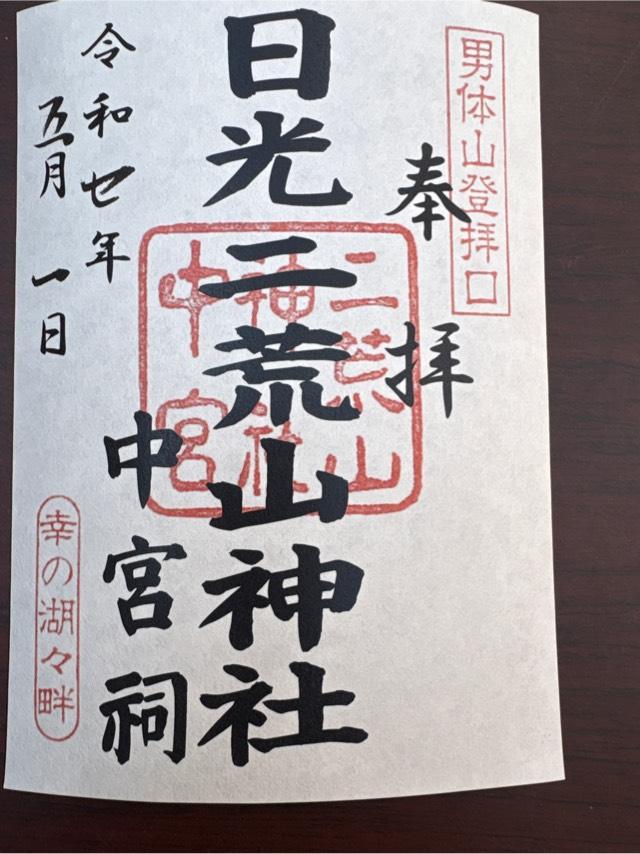 男体山登拝口
奉拝
日光二荒山神社
中宮祠
二荒山
神社
中宮
令和七年
五月一日
幸の湖々畔